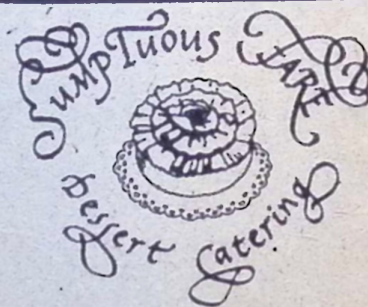 SUMPTuous FARE
Dessert Catering